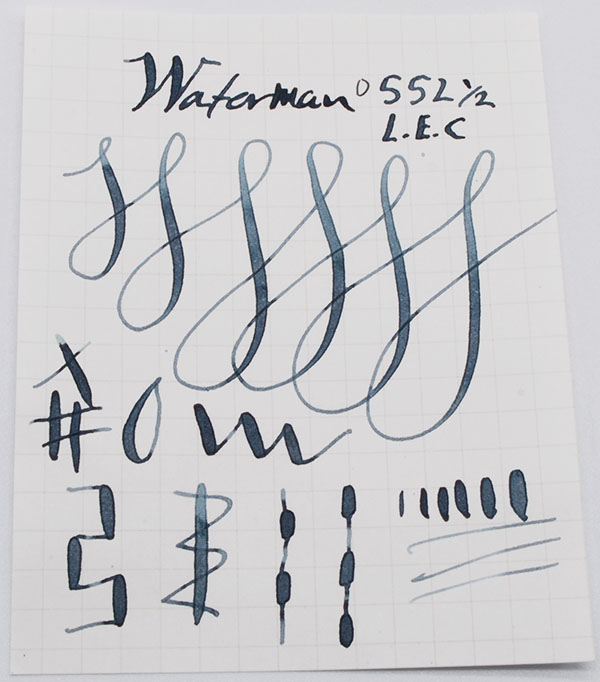 Waterman 0552 1/2
L.E.C